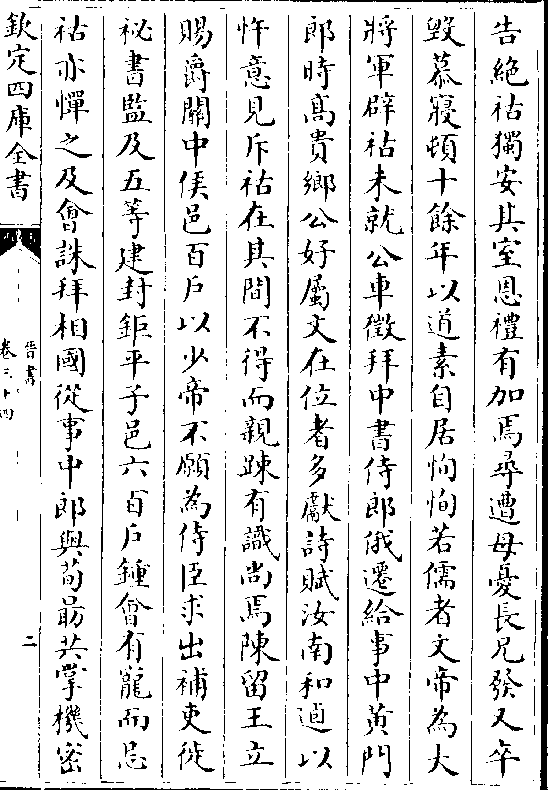 告絶祜獨安其室恩禮有加焉尋遭母憂長兄發又卒
毀慕寢頓十餘年以道素自居恂恂若儒者文帝為大
將軍辟祜未就公車徵拜中書侍郎俄遷給事中黃門
郎時髙貴鄉公好屬文在位者多獻詩賦汝南和逌以
忤意見斥祜在其間不得而親踈有識尚焉陳留王立
賜爵關中侯邑百戶以少帝不願為侍臣求出補吏徙
祕書監及五等建封鉅平子邑六百戶鍾㑹有寵而忌
祜亦憚之及㑹誅拜相國從事中郎與荀勗共掌機密
欽定四庫全書
晉書
卷三十四
二